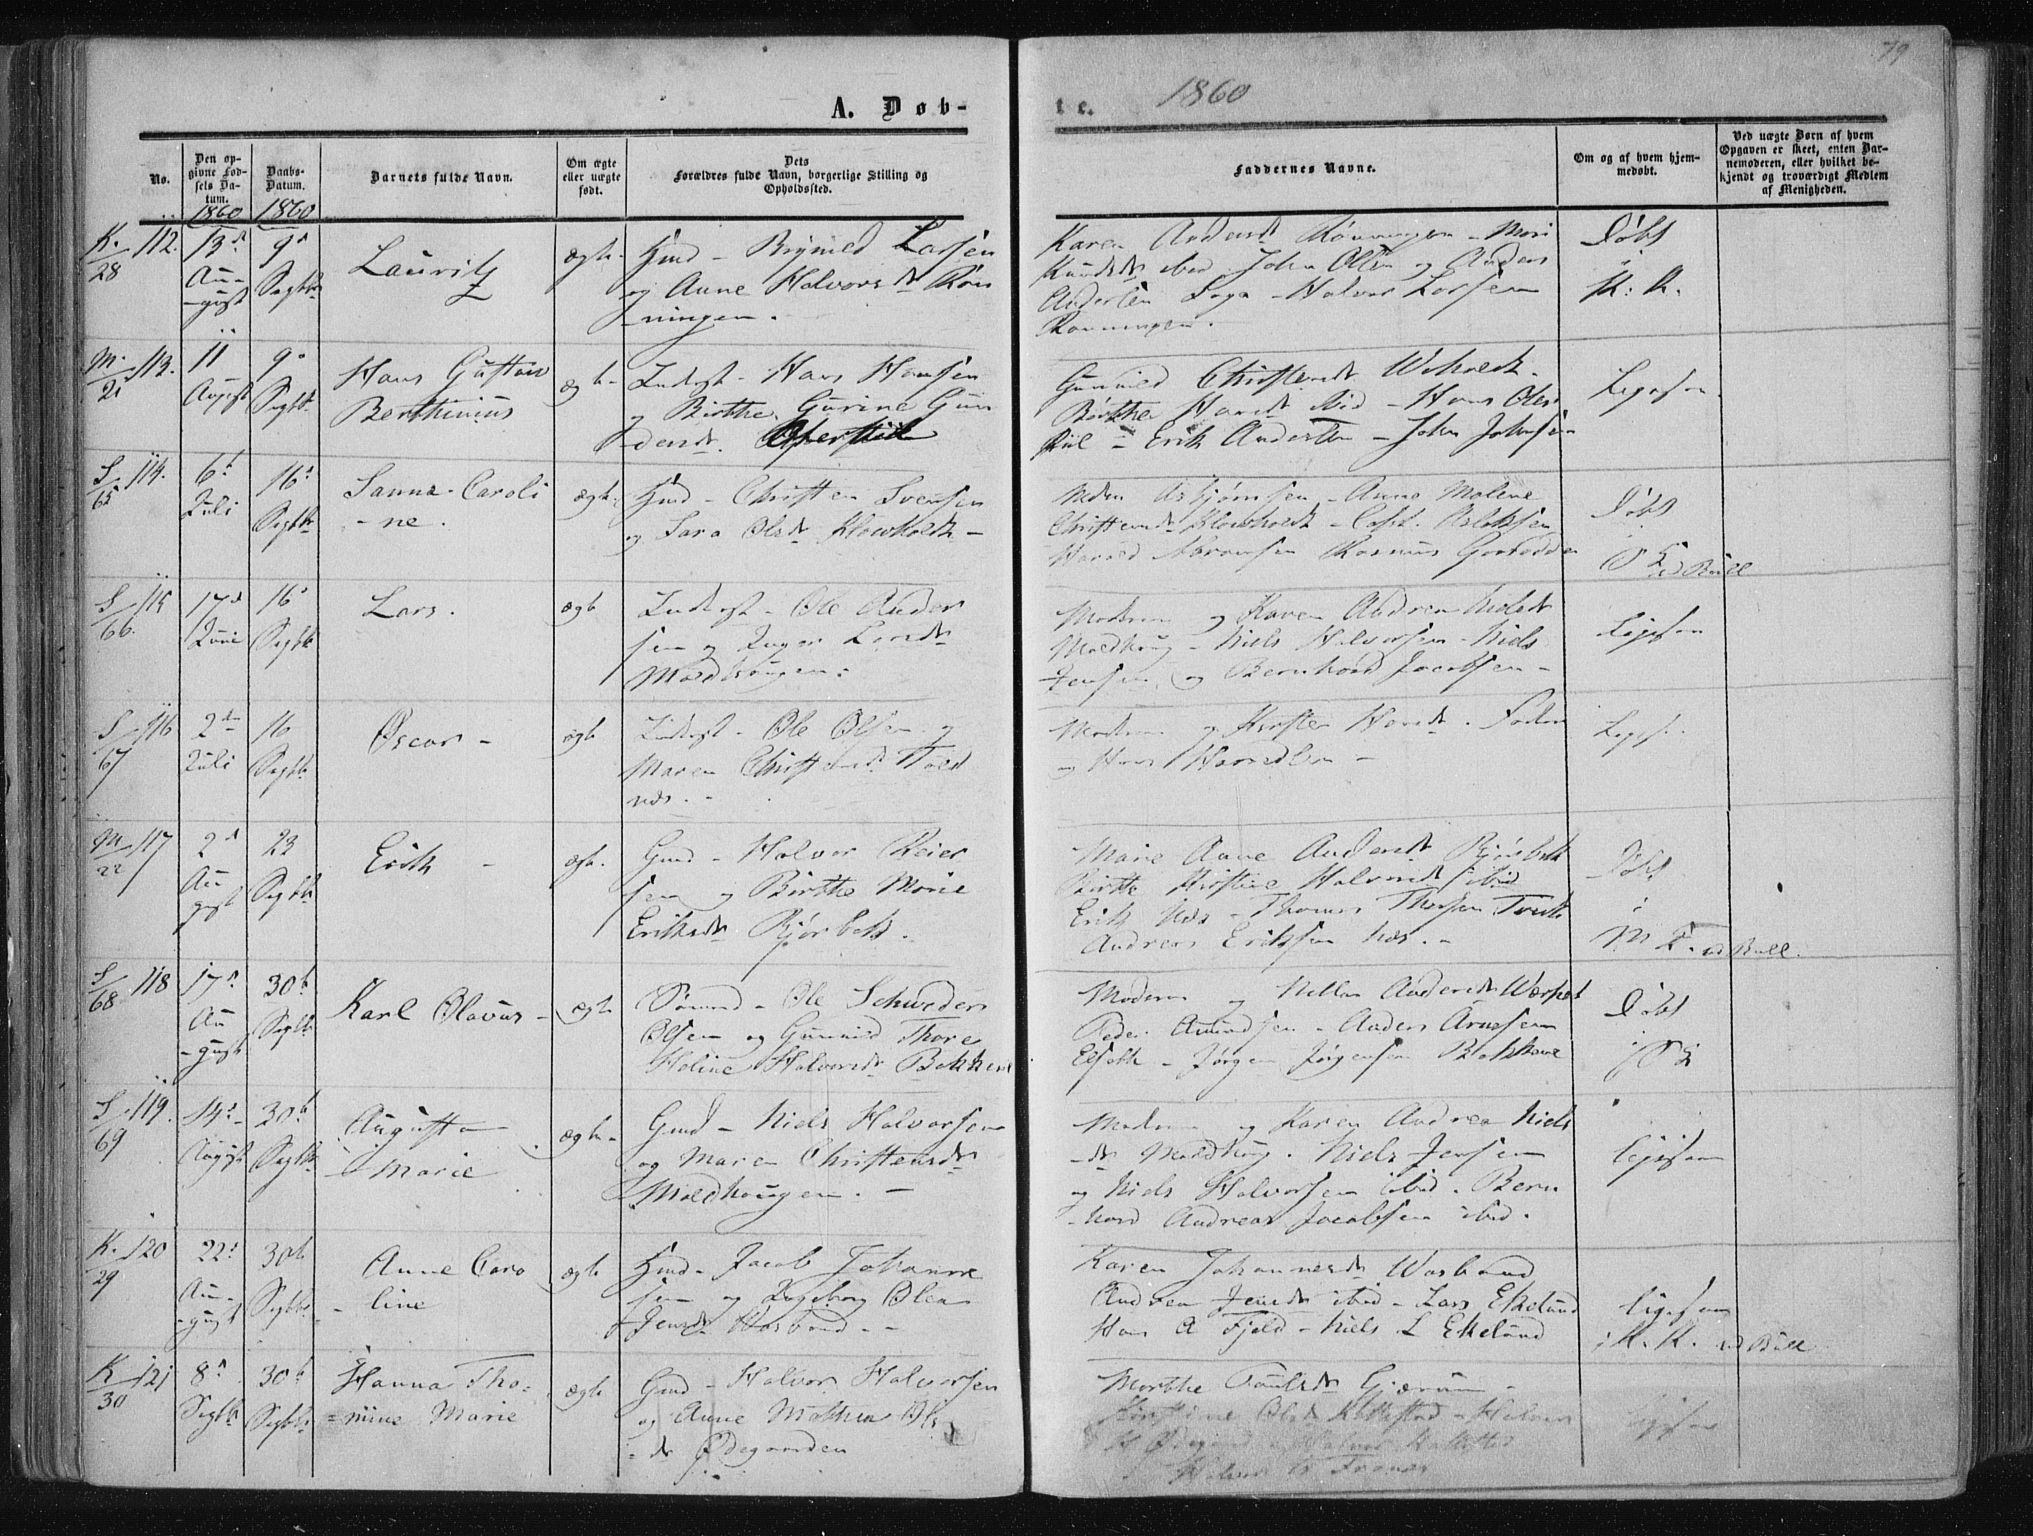 79
A. Døb-
te.
1860
No.
Den op-
givne Fød-
sels Da-
tum.
1860
Daabs-
Datum.
1860
Barnets fulde Navn.
Om ægte
eller uægte
født.
Dets
Forældres fulde Navn, borgerlige Stilling og
Opholdssted.
Faddernes Navne.
Om og af hvem hjem-
medøbt.
Ved uægte Børn af hvem
Opgaven er skeet, enten Bar-
nemoderen, eller hvilket be-
kjendt og troværdigt Medlem
af Menigheden.
K.
28
112.
13d
Au-
-gust
9d
Septbr
Lauritz
ægte
Gmd - Brynild Larsen
og Anne Halvorsdt Røn
-ningen.
Karen Andersdt Rønningen - Mari
Knudsdt ibid John Olsen og Anders
Andersen - Halvor Larsen
Rønningen.
Døbt
i
K: K.
M.
21
113.
11
August
9d
Septbr
Hans Gustav
Berthinius
ægte
Inderst - Hans Hansen
og Birthe Gurine Gun
dersdt.
Gunnild Christensdt
Birthe Hansdt ibid - Hans Olsen
- Erik Andersen - John Johnsen
Ligesaa
S
65
114.
6t
Juli
16d
Septbr
Sanna Caroli
-ne.
ægte
Gmd - Christen Svensen
og Sara Olsdt
Asbjørnsen - Anne Malene
Christensdt
Rasmus
Døbt
i
S K
ved Bull
S
66.
115
17d
Juni
16d
Septbr
Lars.
ægte
Inderst - Ole Ander
sen og Inger Larsdt
Moldhougen.
Moderen og Karen Andrea Nielsdt
Moldhoug - Niels Halvorsen - Niels
Jensen og Bernhard Jacobsen -
Ligesaa
S
67
116
2den
Juli
16
Septbr
Oscar -
ægte
Inderst - Ole Olsen og
Maren Christensdt
næs. -
Moderen og Kirsten Hansdt.
og Hans
Ligesaa
M
22
117
2d
Au
gust
23
Septbr
Erik -
ægte
Gmd - Halvor Reier
sen og Birthe Marie
Eriksdt Bjørbek.
Marie Anne Andersdt Bjørbek
Birthe Kirstine Halvorsdt ibid
Erik Næs - Thomas
Andreas Eriksen Næs. -
Døbt
i
M K. ved Bull.
S
68
118
17d
Au
-gust
30te
Septbr
Karl Olavus -
ægte
Sømnd - Ole Schweder
Olsen og Gunnild Thore
Holine Halvorsdt Bakken
Moderen og Andersdt
Peder Amundsen - Anders Arnesen
- Jørgen Jørgensen
Døbt
i S K
S
69
119.
14d
August
30te
Septbr
Augusta
Marie
ægte
Gmd - Niels Halvorsen
og Maren Christensdt
Moldhougen. -
Moderen og Karen Andrea Niels
-dt Moldhoug. Niels Jensen
og Niels Halvorsen ibid. Bern
-hard Andreas Jacobsen ibid.
ligesaa
K.
29
120
22d
Au-
-gust
30te
Septbr
Anne Caro
-line
ægte
Gmd - Jacob Johanne
sen og Ingeborg Olea
Jensdt Wasbond - -
Karen Johannesdt Wasbond
Andrea Jensdt ibid - Lars Ekelund
Hans A Fjeld - Niels L Ekelund
ligesaa
i K. K. ved Bull
K
30
121
8d
Septbr
30te
Septbr
Hanna Tho-
=mine Marie
ægte
Gmd - Halvor Halvorsen
og Anne Mathea Ols
-dt Ødegaarden
Marthe Poulsdt Gjerum -
Olsdt - Halvor
Halvor
ligesaa